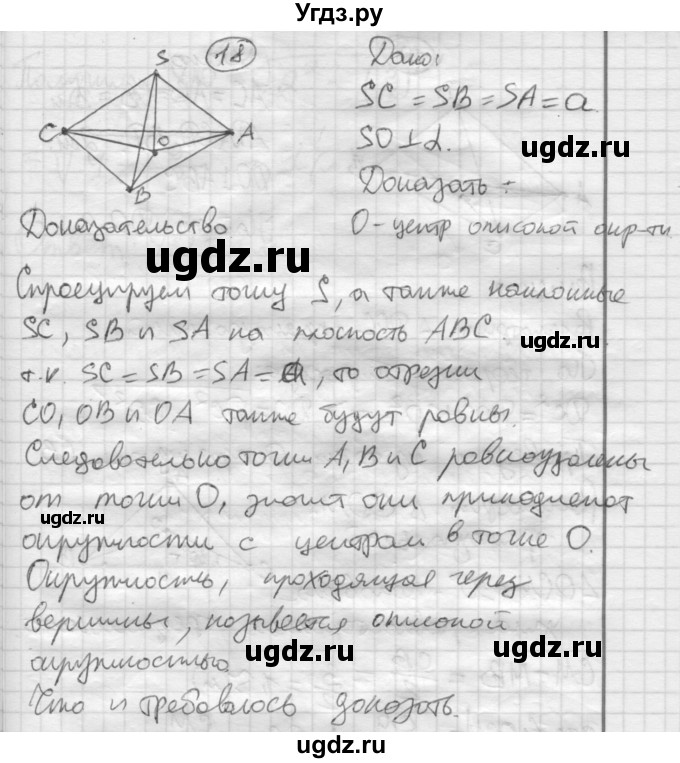 Угдз.ру
18
S
C
O
A
B
Дано:
SC = SB = SA = a.
SO ⊥ α.
Доказать:
О - центр описокой окр-ти
Доказательство
Спроецируем точку S, а также наклонные
SC, SB и SA на плоскость ABC.
т.к. SC = SB = SA = a, то отрезки
CO, OB и OA также будут равны.
Следовательно точки A, B и C равноудалены
от точки O, значит они принадлежат
окружности с центром в точке O.
Окружность, проходящая через
вершины, называется описокой
окружностью.
Что и требовалось доказать.
ugdz.ru
ugdz.ru
ugdz.ru
ugdz.ru
ugdz.ru
ugdz.ru
ugdz.ru
ugdz.ru
ugdz.ru